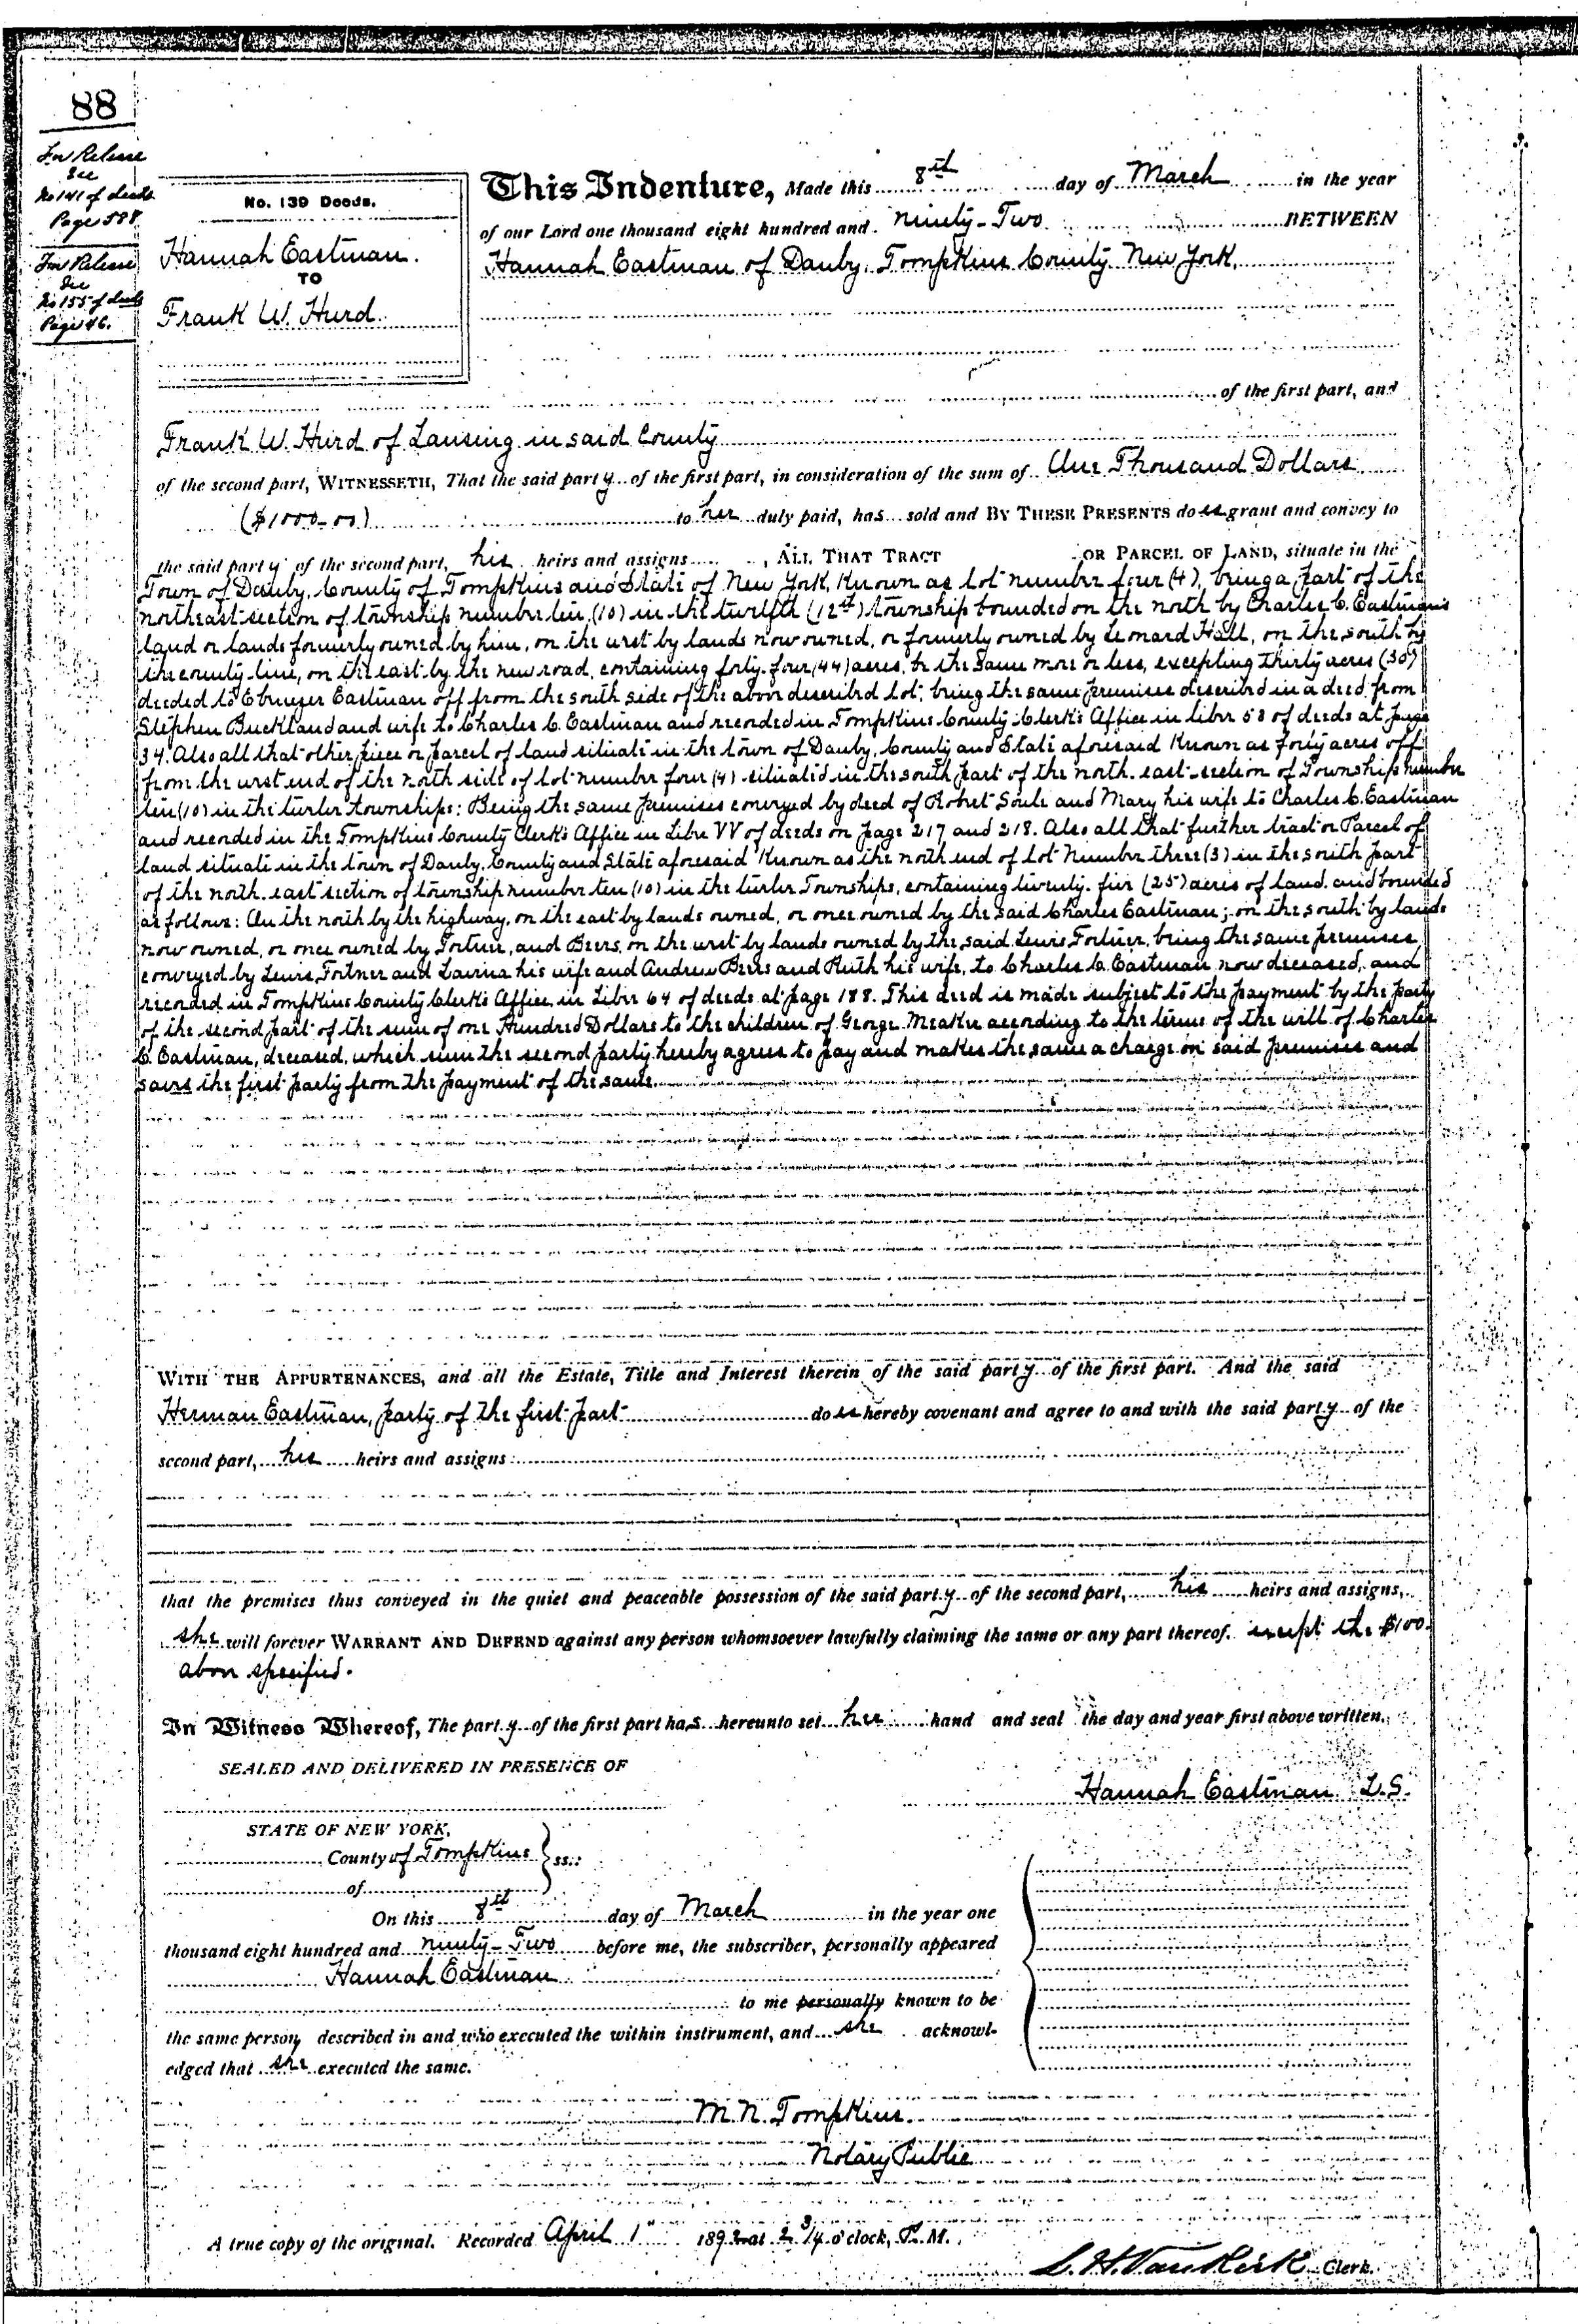 88
For Release
See
No 141 of deeds
Page 588.
For Release
See
No 155 of deeds
Page 46.
No. 139 Deeds.
Hannah Eastman.
TO
Frank W. Hurd.
This Indenture, Made this 8th day of March in the year
of our Lord one thousand eight hundred and ninety-Two BETWEEN
Hannah Eastman of Danby, Tompkins County New York,
of the first part, and
Frank W. Hurd of Lansing in said County
of the second part, WITNESSETH, That the said party of the first part, in consideration of the sum of One Thousand Dollars
($1000.00) to her duly paid, has sold and BY THESE PRESENTS does grant and convey to
the said party of the second part, his heirs and assigns, ALL THAT TRACT OR PARCEL OF LAND, situate in the
Town of Danby, County of Tompkins and State of New York, Known as lot number four (4), being a part of the
northeast section of township number ten, (10) in the twelfth (12th) township bounded on the north by Charles C. Eastman's
land or lands formerly owned by him, on the west by lands now owned, or formerly owned by Leonard Hall, on the south by
the county line, on the east by the new road, containing forty-four (44) acres, be the same more or less, excepting thirty acres (30)
deeded to Ebenezer Eastman off from the south side of the above described lot; being the same premises described in a deed from
Stephen Buckland and wife to Charles C. Eastman and recorded in Tompkins County Clerk's Office in liber 58 of deeds at page
34. Also all that other piece or parcel of land situate in the town of Danby, County and State aforesaid Known as forty acres off
from the west end of the north side of lot number four (4) situated in the south part of the north-east section of Township number
ten (10) in the twelve townships: Being the same premises conveyed by deed of Robert Soule and Mary his wife to Charles C. Eastman
and recorded in the Tompkins County Clerk's Office in Liber VV of deeds on page 217 and 218. Also all that further tract or Parcel of
land situate in the town of Danby, County and State aforesaid Known as the north end of lot Number three (3) in the south part
of the north-east section of township number ten (10) in the twelve Townships, containing twenty-five (25) acres of land and bounded
as follows: On the north by the highway, on the east by lands owned, or once owned by the said Charles Eastman; on the south by lands
now owned, or once owned by Fortner, and Beers, on the west by lands owned by the said Lewis Fortner, being the same premises
conveyed by Lewis Fortner and Lavina his wife and Andrew Beers and Ruth his wife, to Charles C. Eastman now deceased, and
recorded in Tompkins County Clerk's Office in Liber 64 of deeds at page 188. This deed is made subject to the payment by the party
of the second part of the sum of one Hundred Dollars to the children of George Meaker according to the terms of the will of Charles
C. Eastman, deceased, which sum the second party hereby agrees to pay and makes the same a charge on said premises and
saves the first party from the payment of the same.
WITH THE APPURTENANCES, and all the Estate, Title and Interest therein of the said party of the first part. And the said
Herman Eastman, party of the first part does hereby covenant and agree to and with the said party of the
second part, his heirs and assigns
that the premises thus conveyed in the quiet and peaceable possession of the said party of the second part, his heirs and assigns,
she will forever WARRANT AND DEFEND against any person whomsoever lawfully claiming the same or any part thereof. except the $100.
above specified.
In Witness Whereof, The party of the first part has hereunto set her hand and seal the day and year first above written.
SEALED AND DELIVERED IN PRESENCE OF
Hannah Eastman L.S.
STATE OF NEW YORK,
County of Tompkins ss.:
of
On this 8th day of March in the year one
thousand eight hundred and ninety-Two before me, the subscriber, personally appeared
Hannah Eastman
to me personally known to be
the same person described in and who executed the within instrument, and she acknowl-
edged that she executed the same.
M. N. Tompkins.
Notary Public
A true copy of the original. Recorded April 1" 1892 at 2 3/4 o'clock, P. M.
L. H. Van Kirk Clerk.